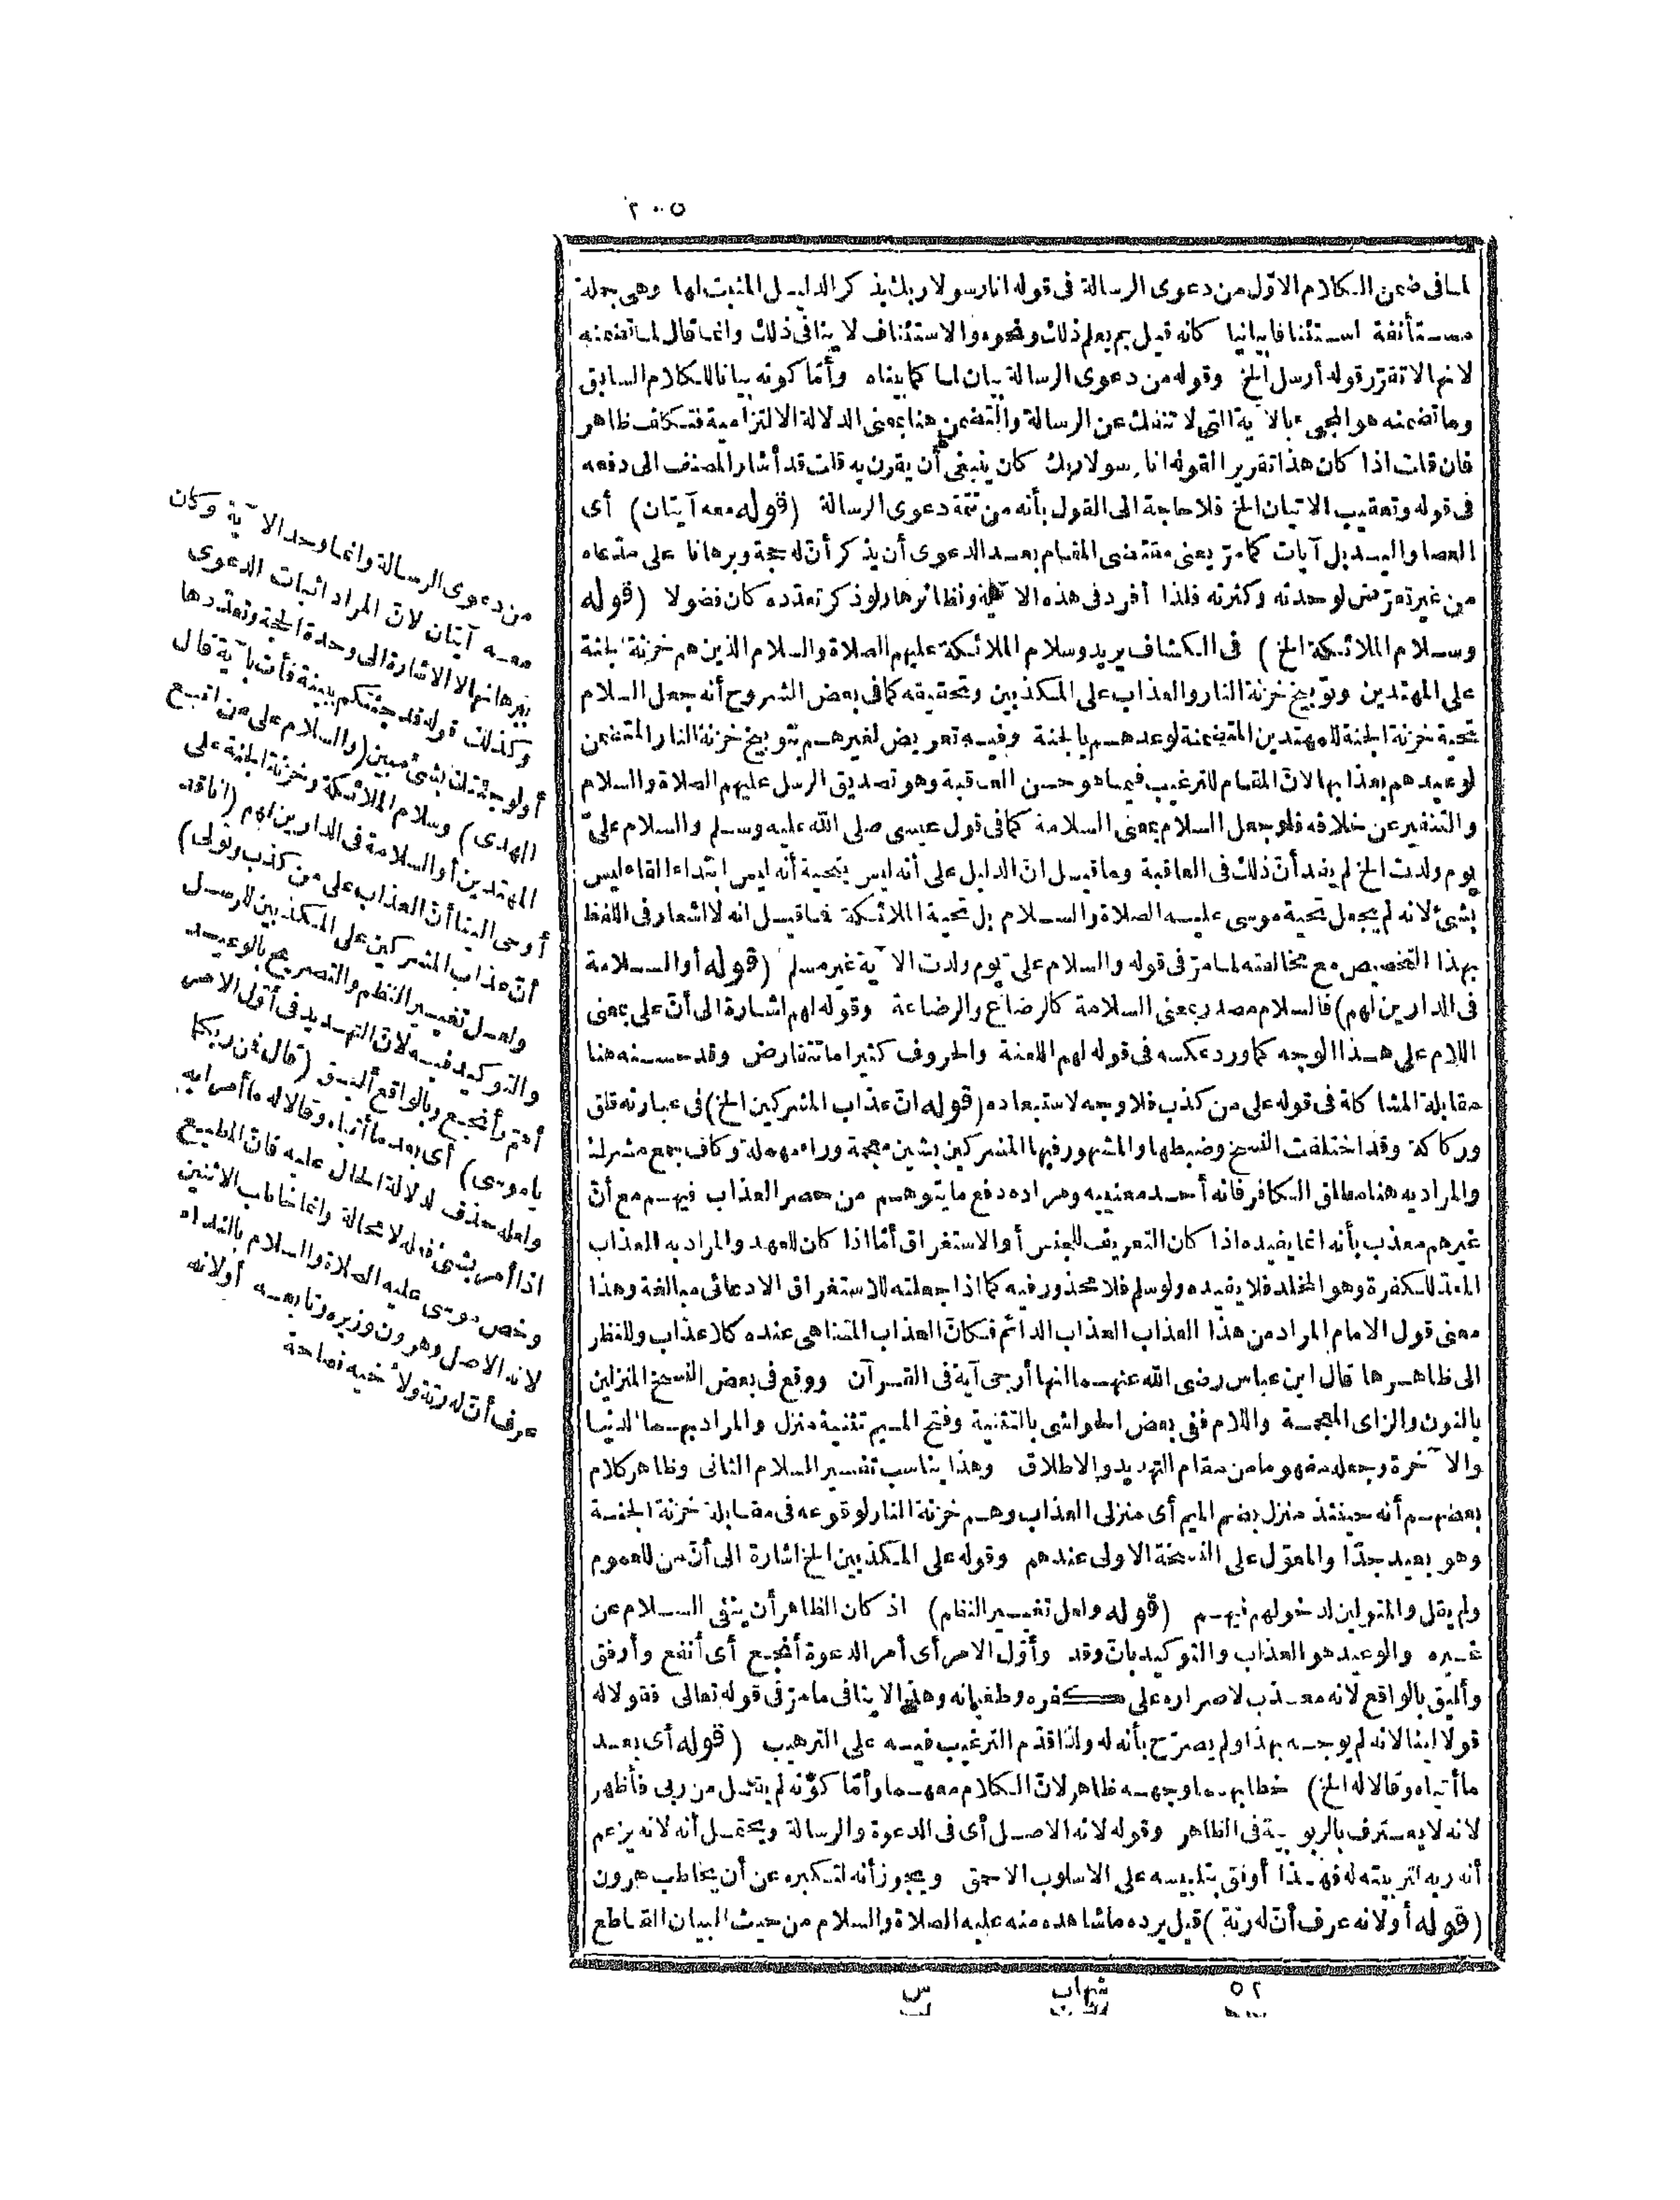 ٢٠٥
لما فى ضمن الكلام الاوّل من دعوى الرسالة فى قوله انا رسولا ربك بذكر الدليل المثبت لها وهى جملة
مستأنفة استئنافا بيانيا كانه قيل بم يعلم ذلك ونحوه والاستئناف لا ينافى ذلك وانما قال لما تضمنه
لانها لا تقرّر قوله أرسل الخ وقوله من دعوى الرسالة بيان لما كما بيناه وأمّا كونه بيانا للكلام السابق
وما تضمنه هو المجىء بالآية التى لا تنفك عن الرسالة والتضمن هنا بمعنى الدلالة الالتزامية فتكلف ظاهر
فان قلت اذا كان هذا تقريرا لقوله انا رسولا ربك كان ينبغى أن يقرن به قلت قد أشار المصنف الى دفعه
فى قوله وتعقيب الاتيان الخ فلا حاجة الى القول بأنه من تتمّة دعوى الرسالة (قوله معه آيتان) أى
العصا واليد بل آيات كما مرّ يعنى مقتضى المقام بعد الدعوى أن يذكر أنّ له حجة وبرهانا على مدّعاه
من غير تعرّض لوحدته وكثرته فلذا أفرد فى هذه الآية ونظائرها ولو ذكر تعدّده كان فضولا (قوله
وسلام الملائكة الخ) فى الكشاف يريد وسلام الملائكة عليهم الصلاة والسلام الذين هم خزنة الجنة
على المهتدين وتوبيخ خزنة النار والعذاب على المكذبين وتحقيقه كما فى بعض الشروح أنه جعل السلام
تحية خزنة الجنة للمهتدين المتضمنة لوعدهم بالجنة وفيه تعريض لغيرهم بتوبيخ خزنة النار المتضمن
لوعيدهم بعذابها لانّ المقام للترغيب فيما هو حسن العاقبة وهو تصديق الرسل عليهم الصلاة والسلام
والتنفير عن خلافه فلو جعل السلام بمعنى السلامة كما فى قول عيسى صلى الله عليه وسلم والسلام علىّ
يوم ولدت الخ لم يفد أن ذلك فى العاقبة وما قيل ان الدليل على أنه ليس بتحية أنه ليس ابتداء القاء ليس
بشىء لانه لم يجعل تحية موسى عليه الصلاة والسلام بل تحية الملائكة فما قيل انه لا اشعار فى اللفظ
بهذا التخصيص مع مخالفته لما مرّ فى قوله والسلام علىّ يوم ولدت الآية غير مسلم (قوله أو السلامة
فى الدارين لهم) فالسلام مصدر بمعنى السلامة كالرضاع والرضاعة وقوله لهم اشارة الى أنّ على بمعنى
اللام على هذا الوجه كما ورد عكسه فى قوله لهم اللعنة والحروف كثيرا ما تتقارض وقد حسنه هنا
مقابلة المشاكلة فى قوله على من كذب فلا وجه لاستبعاده (قوله انّ عذاب المشركين الخ) فى عبارته قلق
وركاكة وقد اختلفت النسخ وضبطها والمشهور فيها المشركين بشين معجمة وراء مهملة وكاف جمع مشرك
والمراد به هنا مطلق الكافر فانه أحد معنييه ومراده دفع ما يتوهم من حصر العذاب فيهم مع أنّ
غيرهم معذب بأنه انما يفيده اذا كان التعريف للجنس أو الاستغراق أمّا اذا كان للعهد والمراد به العذاب
المعدّ للكفرة وهو المخلد فلا يفيده ولو سلم فلا محذور فيه كما اذا جعلته للاستغراق الادعائى مبالغة وهذا
معنى قول الامام المراد من هذا العذاب العذاب الدائم فكانّ العذاب المتناهى عنده كلا عذاب وللنظر
الى ظاهرها قال ابن عباس رضى الله عنهما انها أرجى آية فى القرآن ووقع فى بعض النسخ المنزلين
بالنون والزاى المعجمة واللام ففى بعض الحواشى بالتثنية وفتح الميم تثنية منزل والمراد بهما الدنيا
والآخرة وجعله مفهوما من مقام التهديد والاطلاق وهذا يناسب تفسير السلام الثانى وظاهر كلام
بعضهم أنه حينئذ منزل بضم الميم أى منزلى العذاب وهم خزنة النار لوقوعه فى مقابلة خزنة الجنة
وهو بعيد جدّا والمعوّل على النسخة الاولى عندهم وقوله على المكذبين الخ اشارة الى أنّ من للعموم
ولم يقل والمتولين لدخولهم فيهم (قوله ولعل تغيير النظم) اذ كان الظاهر أن ينفى السلام عن
غيره والوعيد هو العذاب والتوكيد بانّ وقد وأوّل الامر أى أمر الدعوة أنجع أى أنفع وأرفق
وأليق بالواقع لانه معذب لاصراره على كفره وطغيانه وهذا لا ينافى ما مرّ فى قوله تعالى فقولا له
قولا لينا لانه لم يوجه بهذا ولم يصرّح بأنه له ولذا قدّم الترغيب فيه على الترهيب (قوله أى بعد
ما أتياه وقالا له الخ) خطابهما وجهه ظاهر لانّ الكلام معهما وأمّا كونه لم يقل من ربى فأظهر
لانه لا يعترف بالربوبية فى الظاهر وقوله لانه الاصل أى فى الدعوة والرسالة ويحتمل أنه لانه يزعم
أنه ربه لتربيته له فهذا أوفق بتلبيسه على الاسلوب الاحمق ويجوز أنه لتكبره عن أن يخاطب هرون
(قوله أو لانه عرف أنّ له رتة) قيل يرده ما شاهده منه عليه الصلاة والسلام من حيث البيان القاطع
من دعوى الرسالة وانما وحد الآية وكان
معه آيتان لانّ المراد اثبات الدعوى
ببرهانها لا الاشارة الى وحدة الحجة وتعدّدها
وكذلك قوله قد جئتكم ببينة فأت بآية قال
أولو جئتك بشىء مبين (والسلام على من اتبع
الهدى) وسلام الملائكة وخزنة الجنة على
المهتدين أو السلامة فى الدارين لهم (انا قد
أوحى الينا أنّ العذاب على من كذب وتولى)
أنّ عذاب المشركين على المكذبين للرسل
ولعل تغيير النظم والتصريح بالوعيد
والتوكيد فيه لانّ التهديد فى أوّل الامر
أهمّ وأنجع وبالواقع أليق (قال فمن ربكما
يا موسى) أى بعد ما أتياه وقالا له ما أمرا به
ولعله حذف لدلالة الحال عليه فانّ المطيع
اذا أمر بشىء فعله لا محالة وانما خاطب الاثنين
وخص موسى عليه الصلاة والسلام بالنداء
لانه الاصل وهرون وزيره وتابعه أو لانه
عرف أنّ له رتة ولأخيه فصاحة
٥٢ شهاب س